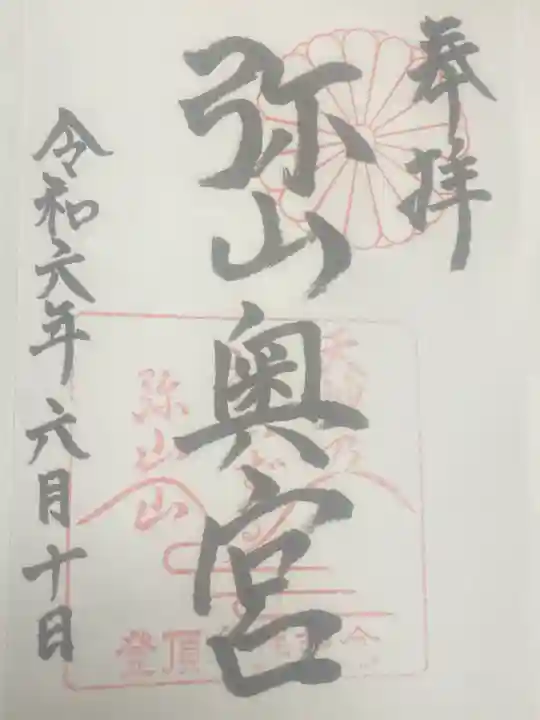 奉拝
弥山奥宮
令和六年六月十日
弥山
登頂